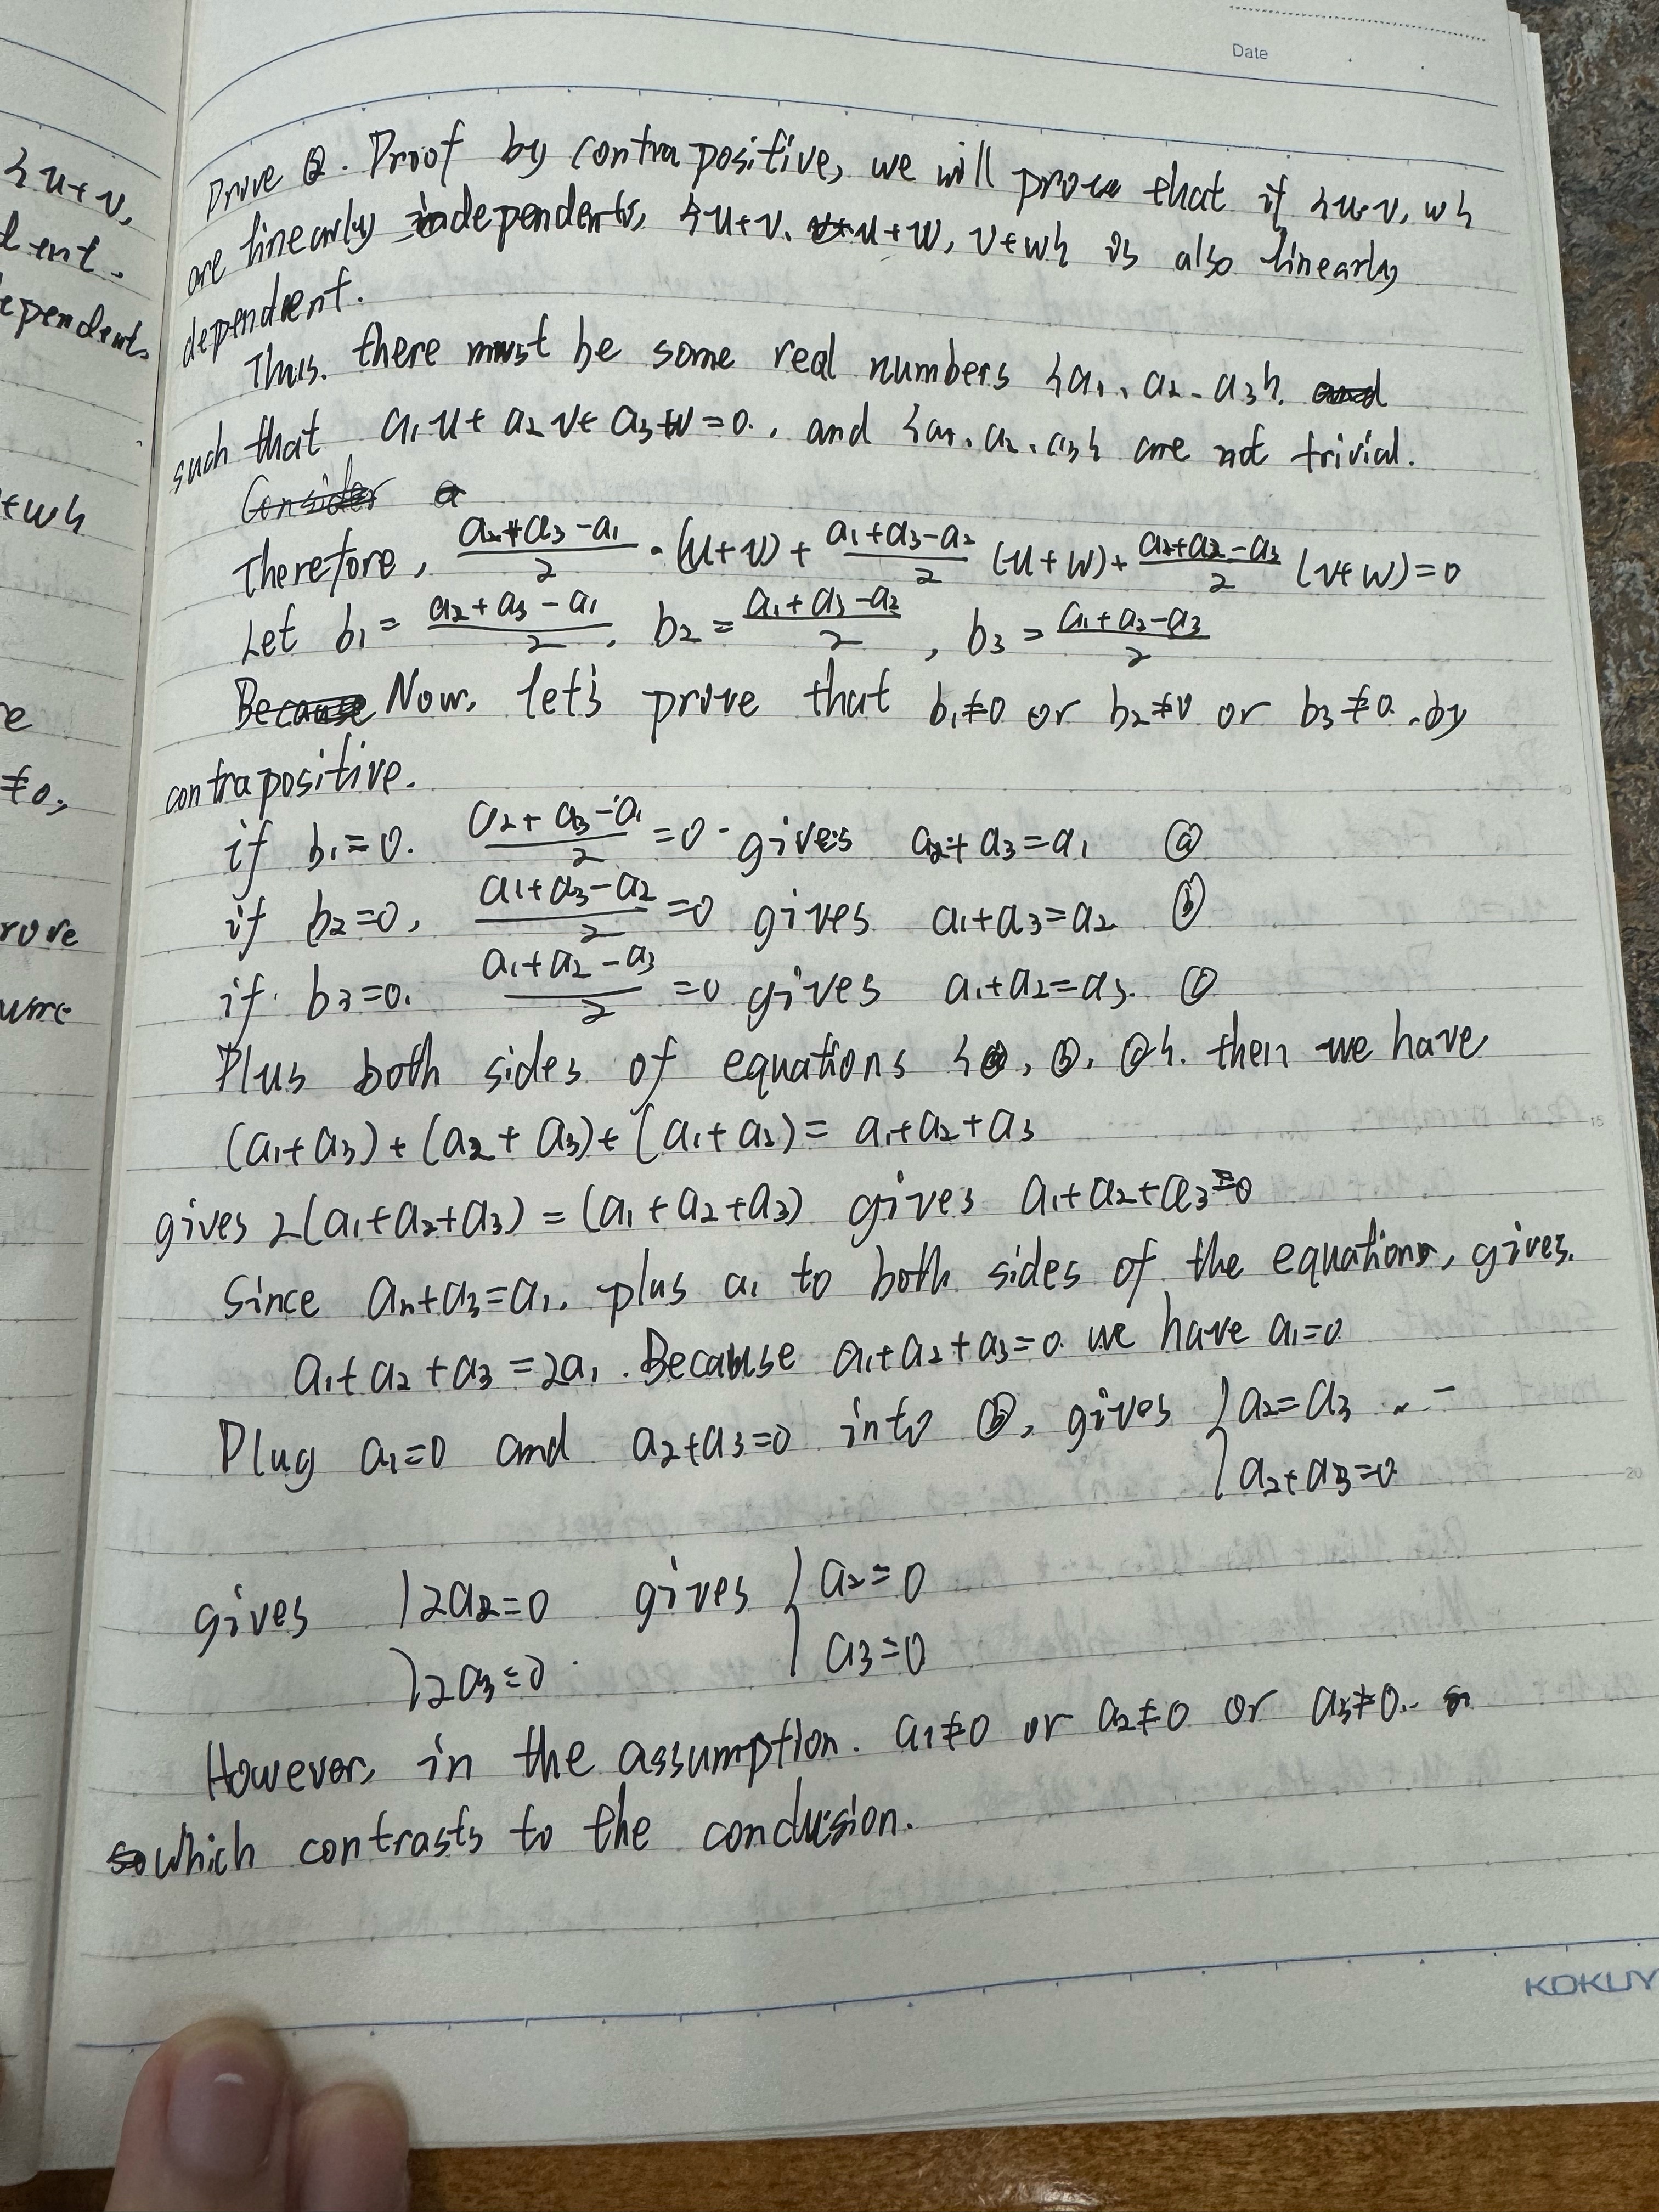 Date
{u+v,
dent.
ependent.
+w}
e
≠0,
rove
ume
Prove ②. Proof by contrapositive, we will prove that if {u.v, w}
are linearly dependent, {u+v. u+w, v+w} is also linearly
dependent.
Thus. there must be some real numbers {a₁, a₂. a₃}.
such that a₁u + a₂v + a₃w = 0., and {a₁. a₂. a₃} are not trivial.
Consider a
Therefore, (a₂+a₃-a₁)/2 · (u+v) + (a₁+a₃-a₂)/2 (u+w) + (a₂+a₂-a₃)/2 (v+w) = 0
Let b₁ = (a₂+a₃-a₁)/2, b₂ = (a₁+a₃-a₂)/2, b₃ = (a₁+a₂-a₃)/2
Because Now. let's prove that b₁≠0 or b₂≠0 or b₃≠0. by
contrapositive.
if b₁=0. (a₂+a₃-a₁)/2 = 0 · gives a₂+a₃=a₁ ⓐ
if b₂=0, (a₁+a₃-a₂)/2 = 0 gives a₁+a₃=a₂ ⓑ
if b₃=0. (a₁+a₂-a₃)/2 = 0 gives a₁+a₂=a₃. ⓒ
Plus both sides of equations {ⓐ, ⓑ, ⓒ}. then we have
(a₁+a₃)+(a₂+a₃)+(a₁+a₂) = a₁+a₂+a₃
gives 2(a₁+a₂+a₃) = (a₁+a₂+a₃) gives a₁+a₂+a₃=0
Since a₂+a₃=a₁. plus a₁ to both sides of the equations, gives.
a₁+a₂+a₃=2a₁. Because a₁+a₂+a₃=0. we have a₁=0
Plug a₁=0 and a₂+a₃=0 into ⓑ, gives { a₂=a₃
a₂+a₃=0
gives { 2a₂=0 gives { a₂=0
2a₃=0 a₃=0
However, in the assumption. a₁≠0 or a₂≠0 or a₃≠0.
so which contrasts to the conclusion.
KOKUY